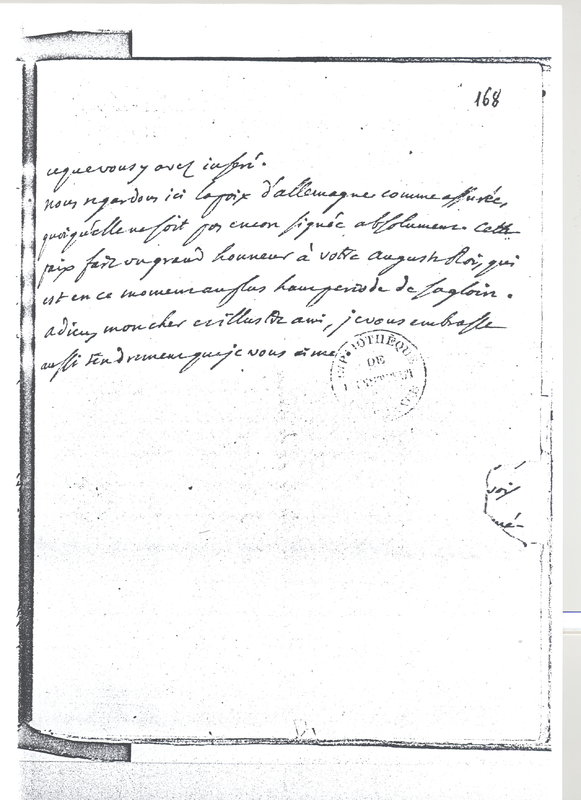 168
ceque vous y avez inséré.
nous regardons ici la paix d'allemagne comme assurée,
quoiqu'elle ne soit pas encor signée absolument. Cette
paix fait un grand honneur à votre auguste Roi, qui
est en ce moment au plus haut periode de sa gloire.
adieu, mon cher et illustre ami, je vous embrasse
aussi tendrement que je vous aime
BIBLIOTHÈQUE
DE
L'INSTITUT
voir
mé-